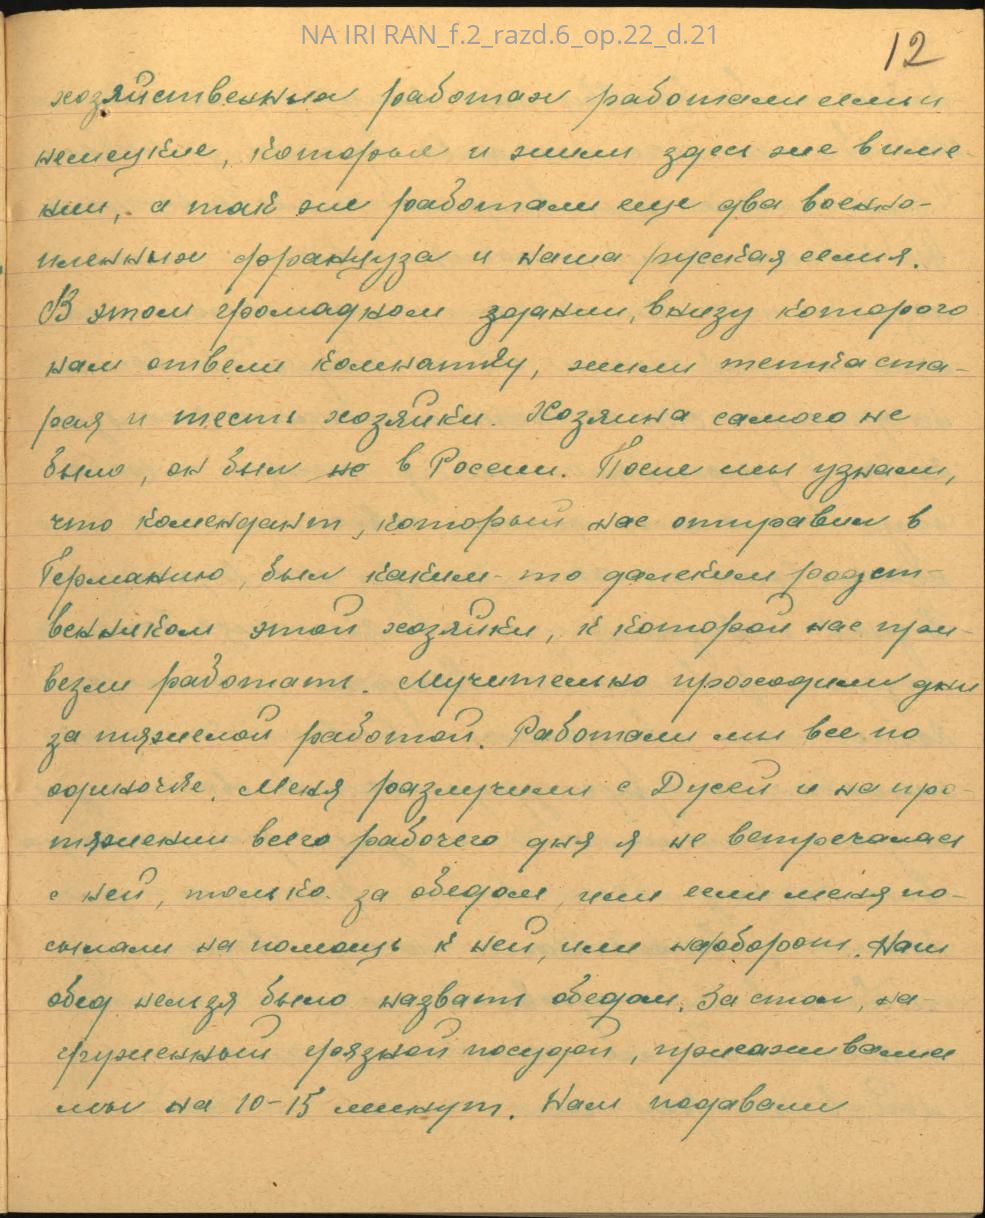 NA IRI RAN_f.2_razd.6_op.22_d.21
12
хозяйственных работах работали семьи
немецкие, которые и жили здесь же в име-
нии, а так же работали еще два военно-
пленных француза и наша русская семья.
В этом громадном здании, внизу которого
нам отвели комнатку, жили тетка ста-
рая и тесть хозяйки. Хозяина самого не
было, он был но в России. После мы узнали,
что комендант, который нас отправил в
Германию, был каким-то далеким родст-
венником этой хозяйки, к которой нас при-
везли работать. Мучительно проходили дни
за тяжелой работой. Работали мы все по
одиночке. Меня разлучили с Дусей и на про-
тяжении всего рабочего дня я не встречалась
с ней, только за обедом, или если меня по-
сылали на помощь к ней, или наоборот. Наш
обед нельзя было назвать обедом. За стол, на-
груженный грязной посудой, присаживались
мы на 10-15 минут. Нам подавали